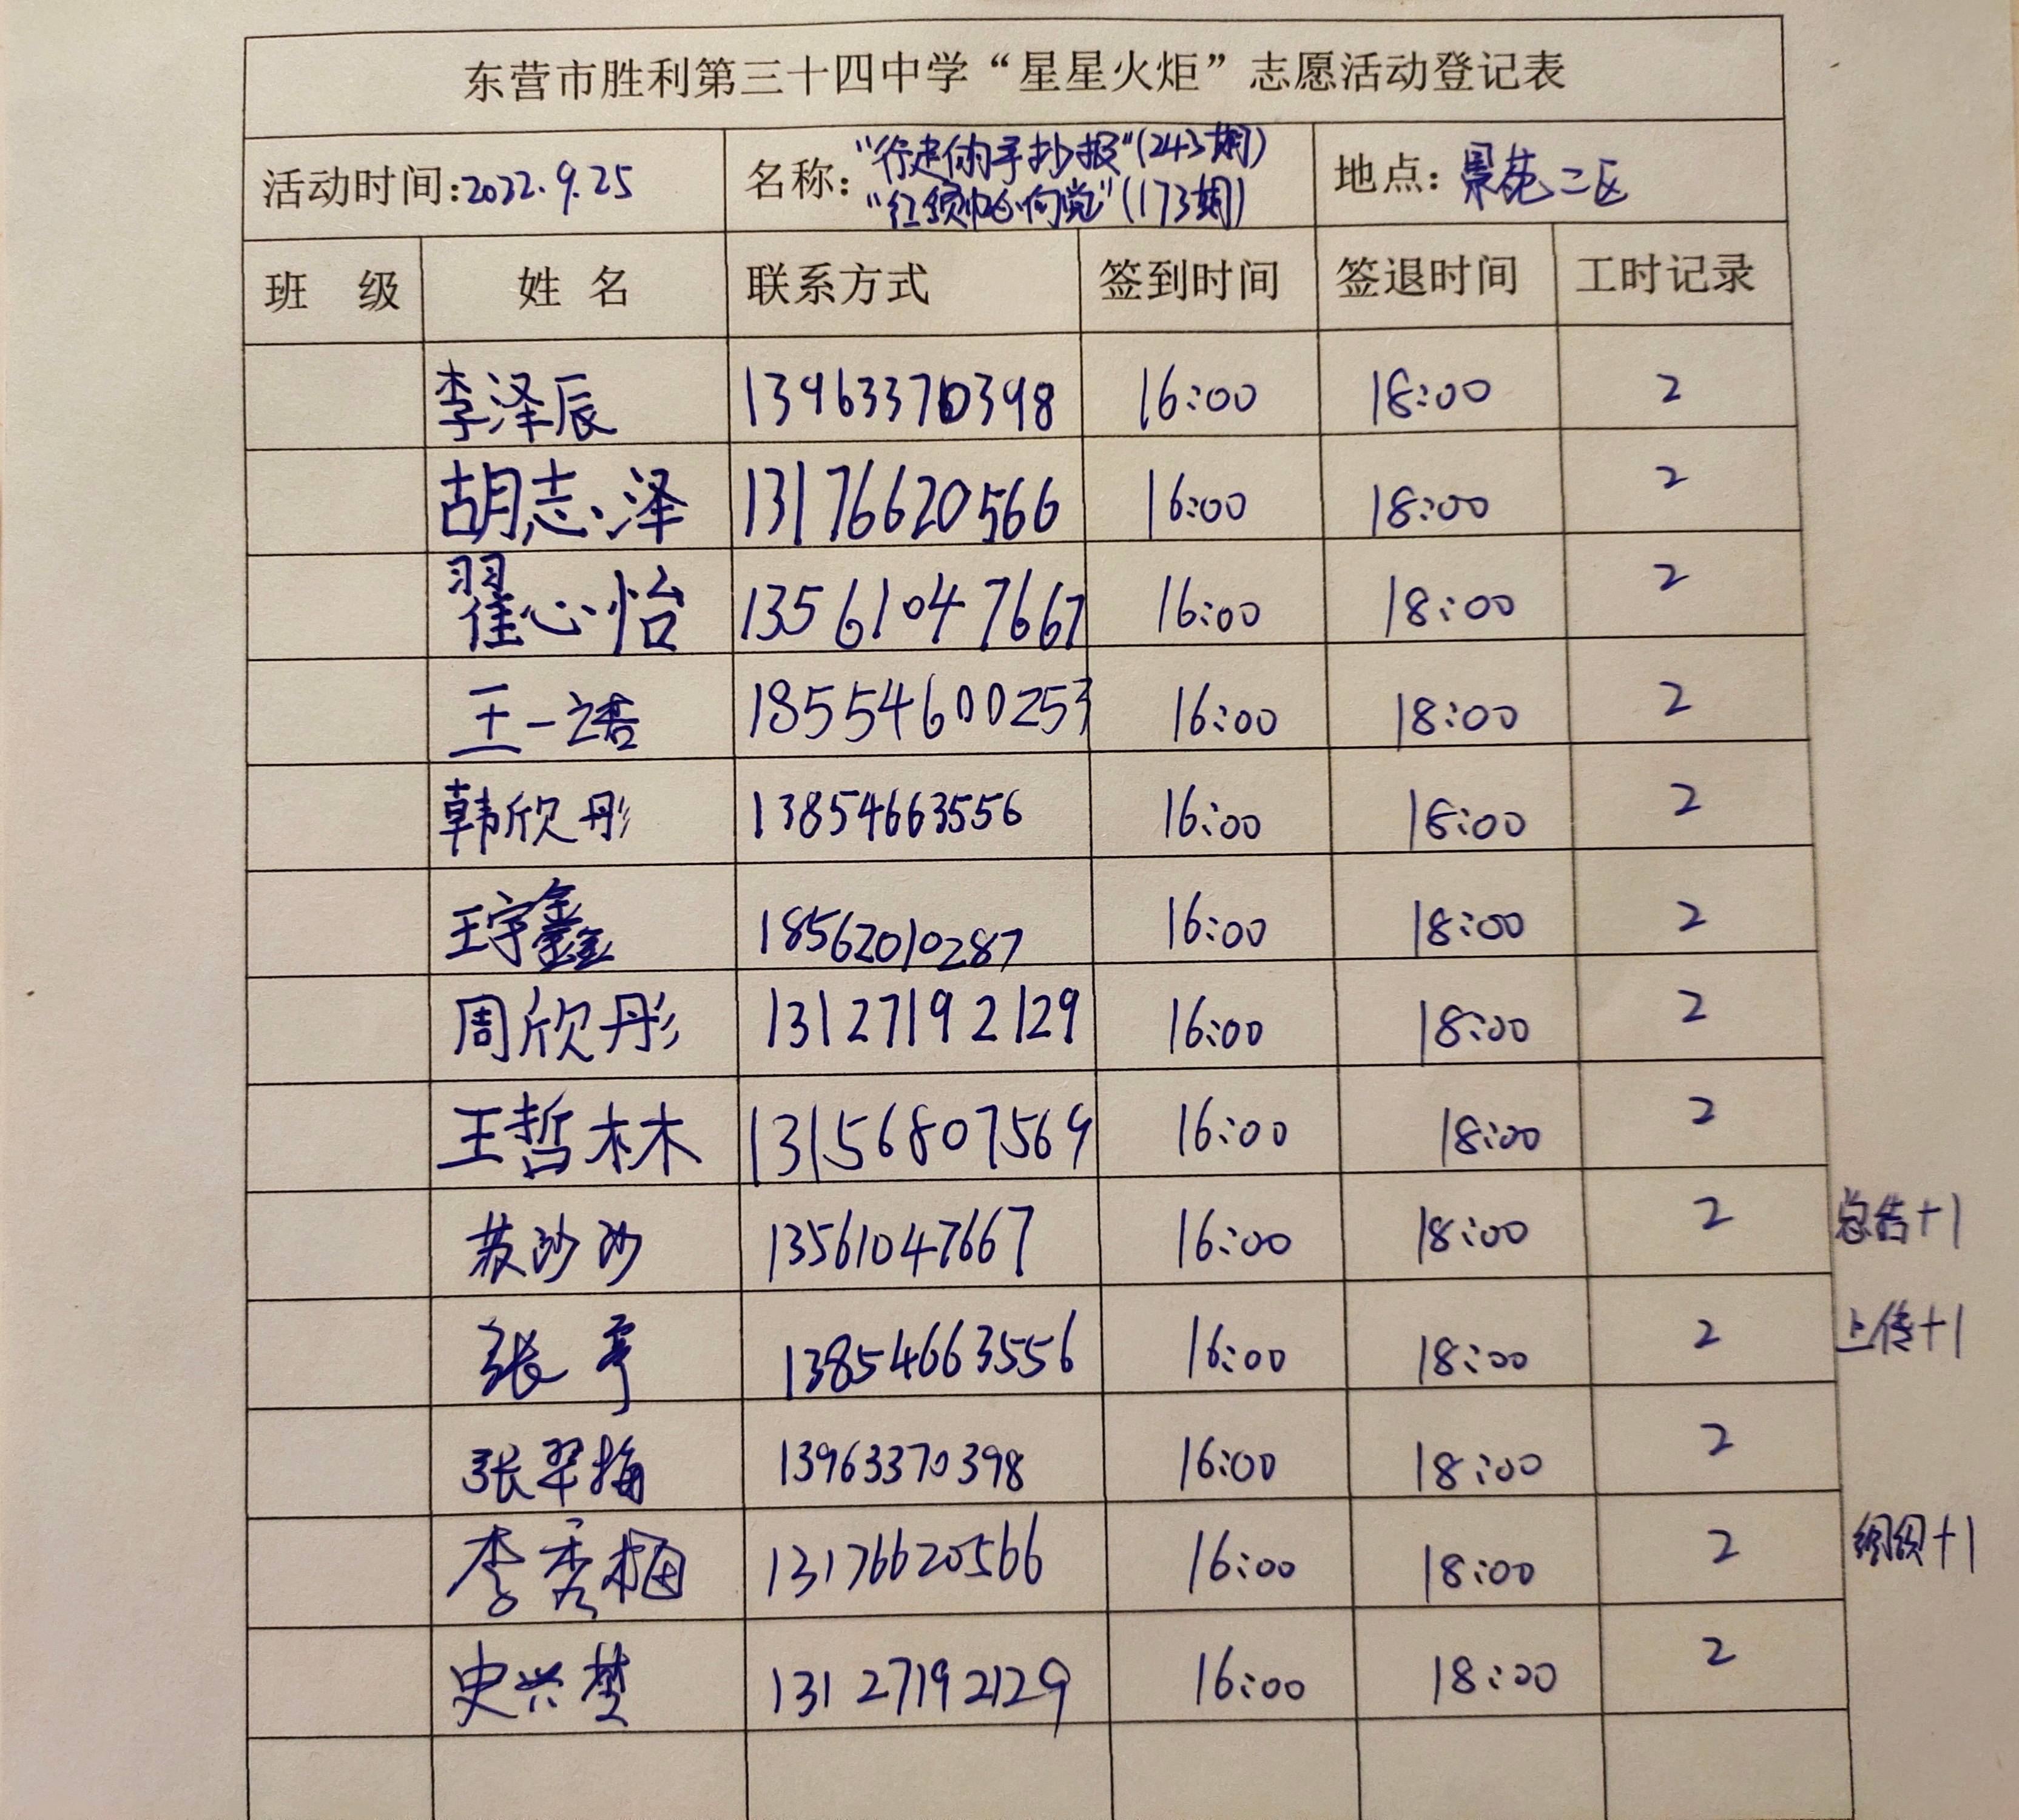 东营市胜利第三十四中学“星星火炬”志愿活动登记表
活动时间:2022.9.25 名称:“行走的手抄报”(243期) “红领巾心向党”(173期) 地点:景苑二区
班 级 姓 名 联系方式 签到时间 签退时间 工时记录
李泽辰 13963370398 16:00 18:00 2
胡志泽 13176620566 16:00 18:00 2
翟心怡 13561047667 16:00 18:00 2
王一 18554600253 16:00 18:00 2
韩欣彤 13854663556 16:00 18:00 2
王宇鑫 18562010287 16:00 18:00 2
周欣彤 13127192129 16:00 18:00 2
王哲林 13156807569 16:00 18:00 2
苏沙沙 13561047667 16:00 18:00 2 总结+1
张 13854663556 16:00 18:00 2 上传+1
张翠梅 13963370398 16:00 18:00 2
李秀梅 13176620566 16:00 18:00 2 组织+1
史兴梦 13127192129 16:00 18:00 2